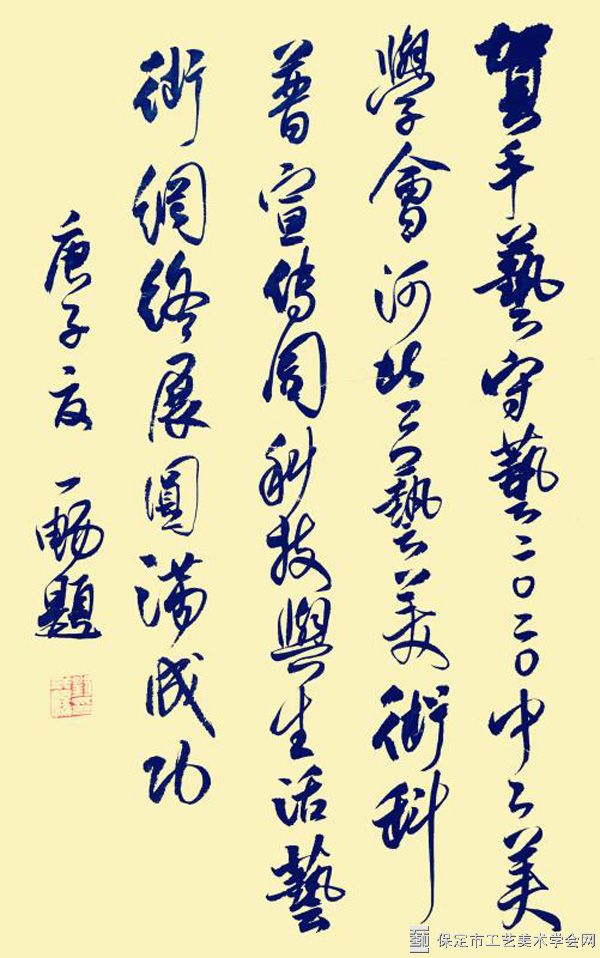 賀手藝守藝二〇二〇中工美
學會河北工藝美術科
普宣传周科技與生活藝
術網络展圓满成功
庚子夏一畅題
保定市工艺美术学会网